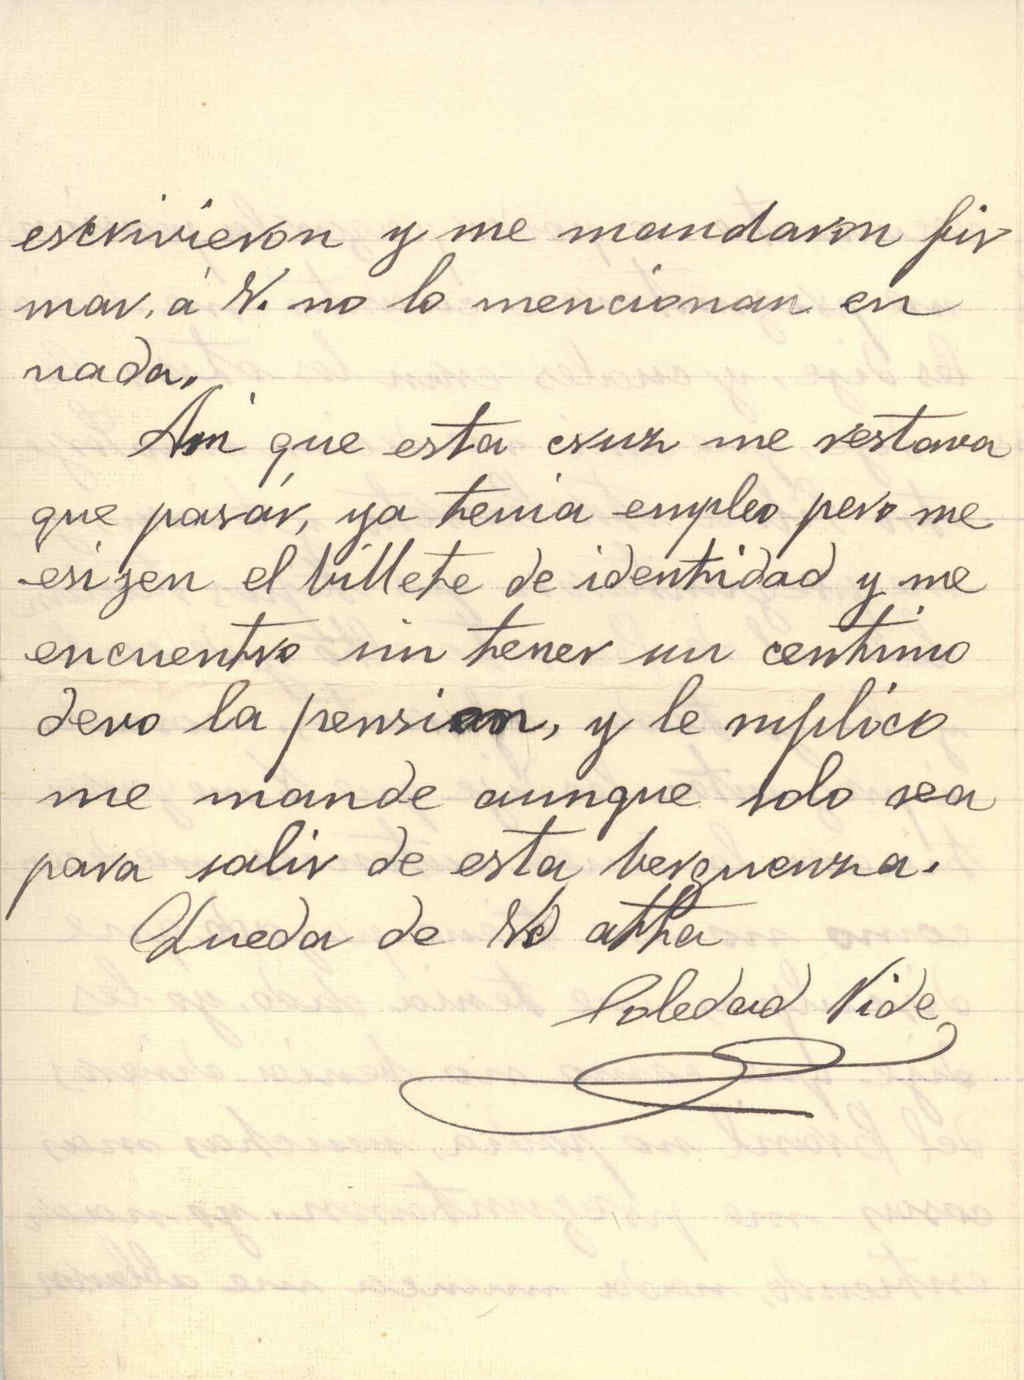 escrivieron y me mandaron fir
mar, á V. no lo mencionan en
nada.
Asi que esta cruz me restava
que pasár, ya tenia empleo pero me
esizen el billete de identidad y me
encuentro sin tener un centimo
devo la pension, y le suplico
me mande aunque solo sea
para salir de esta berguenza.
Queda de Vd attta
Soledad Vide